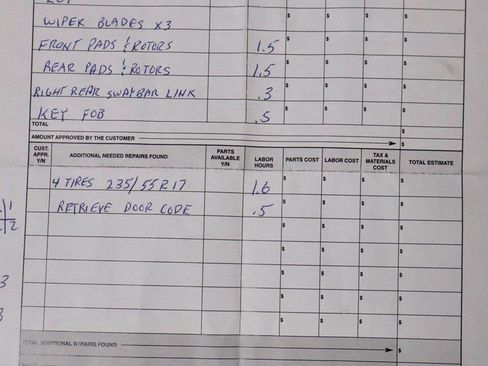 WIPER BLADES X3 $ $ $ $
FRONT PADS & ROTORS 1.5 $ $ $ $
REAR PADS & ROTORS 1.5 $ $ $ $
RIGHT REAR SWAYBAR LINK .3 $ $ $ $
KEY FOB .5 $ $ $ $
TOTAL $
AMOUNT APPROVED BY THE CUSTOMER $
CUST. APPR. Y/N ADDITIONAL NEEDED REPAIRS FOUND PARTS AVAILABLE Y/N LABOR HOURS PARTS COST LABOR COST TAX & MATERIALS COST TOTAL ESTIMATE
4 TIRES 235/55R17 1.6 $ $ $ $
RETRIEVE DOOR CODE .5 $ $ $ $
$ $ $ $
$ $ $ $
$ $ $ $
$ $ $ $
$ $ $ $
TOTAL ADDITIONAL REPAIRS FOUND $